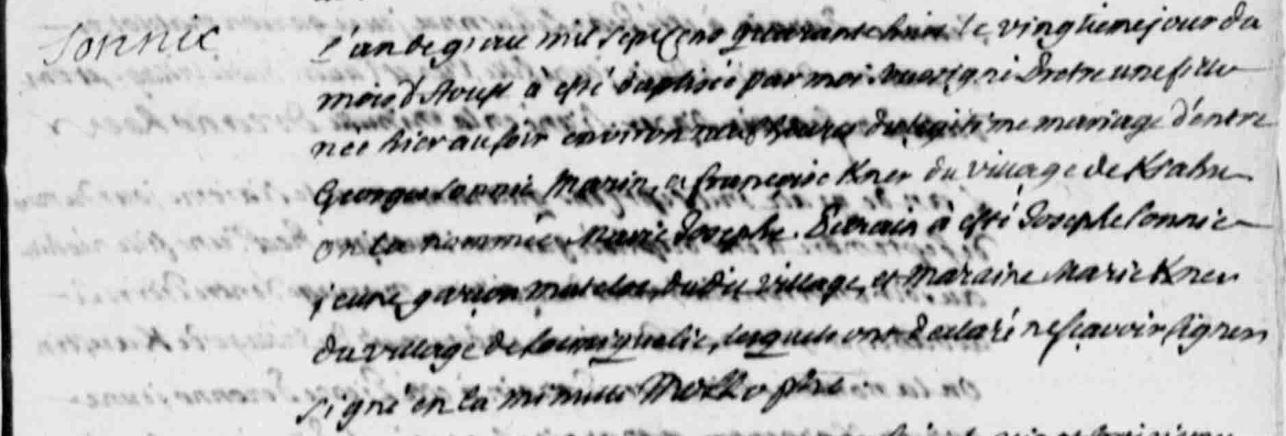 Sonnic
L'an de grace mil sept cent quarante huit le vingtieme jour du
mois d'Aoust a esté baptisée par moi soussigné Prêtre une fille
née hier au soir environ neuf heures du legitime mariage d'entre
George Sonnic Marin, et françoise Kner du village de Ksahu
on la nommée Marie Josephe. Parain à esté Joseph Sonnic
jeune garçon matelot, dudit village, et Maraine Marie Kner
du village de Locmiquelic, lesquels ont declaré ne sçavoir signer
signé en la minute ptre